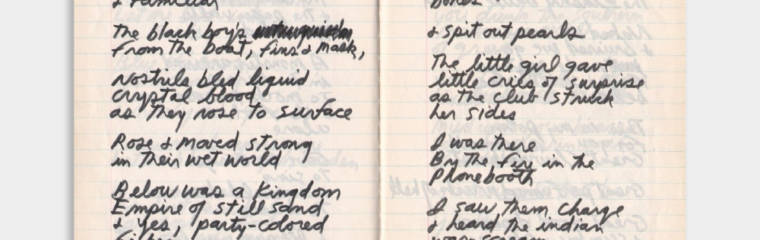 & Familiar
The black boys
From the boat, fins & mask,
Nostrils bled liquid
crystal blood
as they rose to surface
Rose & moved strong
in their wet world
Below was a Kingdom
Empire of still sand
& Yes, party-colored
& spit out pearls
The little girl gave
little cries of surprise
as the club struck
her sides
I was there
By the fire in the
Phonebooth
I saw them charge
& heard the indian